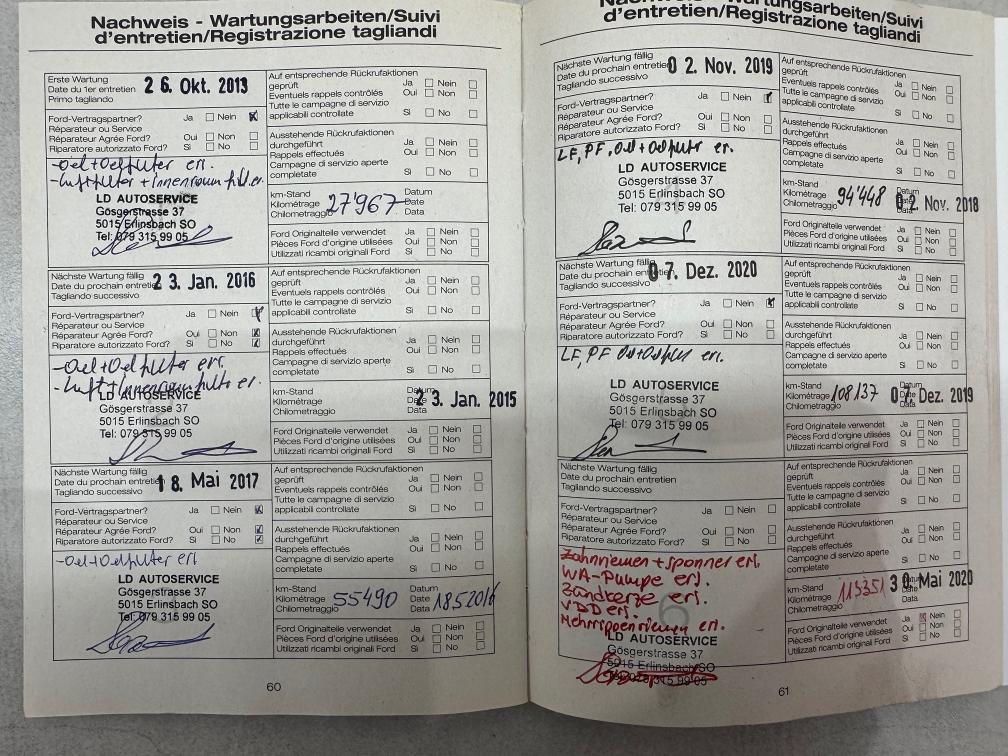 Nachweis - Wartungsarbeiten/Suivi
d'entretien/Registrazione tagliandi
Erste Wartung
Date du 1er entretien
Primo tagliando
2 6. Okt. 2013
Ford-Vertragspartner? Ja Nein
Réparateur ou Service
Réparateur Agrée Ford? Oui Non
Riparatore autorizzato Ford? Si No
-Oel+Oelfilter ers.
-Luftfilter + Innenraumfilter er.
LD AUTOSERVICE
Gösgerstrasse 37
5015 Erlinsbach SO
Tel: 079 315 99 05
Auf entsprechende Rückrufaktionen
geprüft Ja Nein
Eventuels rappels contrôlés Oui Non
Tutte le campagne di servizio
applicabili controllate Si No
Ausstehende Rückrufaktionen
durchgeführt Ja Nein
Rappels effectués Oui Non
Campagne di servizio aperte
completate Si No
km-Stand Datum
Kilométrage 27'967 Date
Chilometraggio Data
Ford Originalteile verwendet Ja Nein
Pièces Ford d'origine utilisées Oui Non
Utilizzati ricambi originali Ford Si No
Nächste Wartung fällig
Date du prochain entretien
Tagliando successivo
2 3. Jan. 2016
Ford-Vertragspartner? Ja Nein
Réparateur ou Service
Réparateur Agrée Ford? Oui Non
Riparatore autorizzato Ford? Si No
-Oel+Oelfilter ers.
-Luft+Innenraumfilter er.
LD AUTOSERVICE
Gösgerstrasse 37
5015 Erlinsbach SO
Tel: 079 315 99 05
Auf entsprechende Rückrufaktionen
geprüft Ja Nein
Eventuels rappels contrôlés Oui Non
Tutte le campagne di servizio
applicabili controllate Si No
Ausstehende Rückrufaktionen
durchgeführt Ja Nein
Rappels effectués Oui Non
Campagne di servizio aperte
completate Si No
km-Stand Datum
Kilométrage Date 2 3. Jan. 2015
Chilometraggio Data
Ford Originalteile verwendet Ja Nein
Pièces Ford d'origine utilisées Oui Non
Utilizzati ricambi originali Ford Si No
Nächste Wartung fällig
Date du prochain entretien
Tagliando successivo
1 8. Mai 2017
Ford-Vertragspartner? Ja Nein
Réparateur ou Service
Réparateur Agrée Ford? Oui Non
Riparatore autorizzato Ford? Si No
-Oel+Oelfilter ers
LD AUTOSERVICE
Gösgerstrasse 37
5015 Erlinsbach SO
Tel: 079 315 99 05
Auf entsprechende Rückrufaktionen
geprüft Ja Nein
Eventuels rappels contrôlés Oui Non
Tutte le campagne di servizio
applicabili controllate Si No
Ausstehende Rückrufaktionen
durchgeführt Ja Nein
Rappels effectués Oui Non
Campagne di servizio aperte
completate Si No
km-Stand Datum
Kilométrage 55490 Date 18.5.2016
Chilometraggio Data
Ford Originalteile verwendet Ja Nein
Pièces Ford d'origine utilisées Oui Non
Utilizzati ricambi originali Ford Si No
60
Nachweis - Wartungsarbeiten/Suivi
d'entretien/Registrazione tagliandi
Nächste Wartung fällig
Date du prochain entretien
Tagliando successivo
0 2. Nov. 2019
Ford-Vertragspartner? Ja Nein
Réparateur ou Service
Réparateur Agrée Ford? Oui Non
Riparatore autorizzato Ford? Si No
LF, PF, Oel+Oelfilter er.
LD AUTOSERVICE
Gösgerstrasse 37
5015 Erlinsbach SO
Tel: 079 315 99 05
Auf entsprechende Rückrufaktionen
geprüft Ja Nein
Eventuels rappels contrôlés Oui Non
Tutte le campagne di servizio
applicabili controllate Si No
Ausstehende Rückrufaktionen
durchgeführt Ja Nein
Rappels effectués Oui Non
Campagne di servizio aperte
completate Si No
km-Stand Datum
Kilométrage 94'448 0 2. Nov. 2018
Chilometraggio Data
Ford Originalteile verwendet Ja Nein
Pièces Ford d'origine utilisées Oui Non
Utilizzati ricambi originali Ford Si No
Nächste Wartung fällig
Date du prochain entretien
Tagliando successivo
0 7. Dez. 2020
Ford-Vertragspartner? Ja Nein
Réparateur ou Service
Réparateur Agrée Ford? Oui Non
Riparatore autorizzato Ford? Si No
LF, PF Oel+Oelfilter ers.
LD AUTOSERVICE
Gösgerstrasse 37
5015 Erlinsbach SO
Tel: 079 315 99 05
Auf entsprechende Rückrufaktionen
geprüft Ja Nein
Eventuels rappels contrôlés Oui Non
Tutte le campagne di servizio
applicabili controllate Si No
Ausstehende Rückrufaktionen
durchgeführt Ja Nein
Rappels effectués Oui Non
Campagne di servizio aperte
completate Si No
km-Stand Datum
Kilométrage 108137 0 7. Dez. 2019
Chilometraggio Data
Ford Originalteile verwendet Ja Nein
Pièces Ford d'origine utilisées Oui Non
Utilizzati ricambi originali Ford Si No
Nächste Wartung fällig
Date du prochain entretien
Tagliando successivo
Ford-Vertragspartner? Ja Nein
Réparateur ou Service
Réparateur Agrée Ford? Oui Non
Riparatore autorizzato Ford? Si No
Zahnriemen + Spanner ers.
WA-Pumpe ers.
Zündkerze ers.
VDD ers.
Mehrrippenriemen ers.
LD AUTOSERVICE
Gösgerstrasse 37
5015 Erlinsbach SO
Tel: 079 315 99 05
Auf entsprechende Rückrufaktionen
geprüft Ja Nein
Eventuels rappels contrôlés Oui Non
Tutte le campagne di servizio
applicabili controllate Si No
Ausstehende Rückrufaktionen
durchgeführt Ja Nein
Rappels effectués Oui Non
Campagne di servizio aperte
completate Si No
km-Stand
Kilométrage 113351 Mai 2020
Chilometraggio Data
Ford Originalteile verwendet Ja Nein
Pièces Ford d'origine utilisées Oui Non
Utilizzati ricambi originali Ford Si No
61